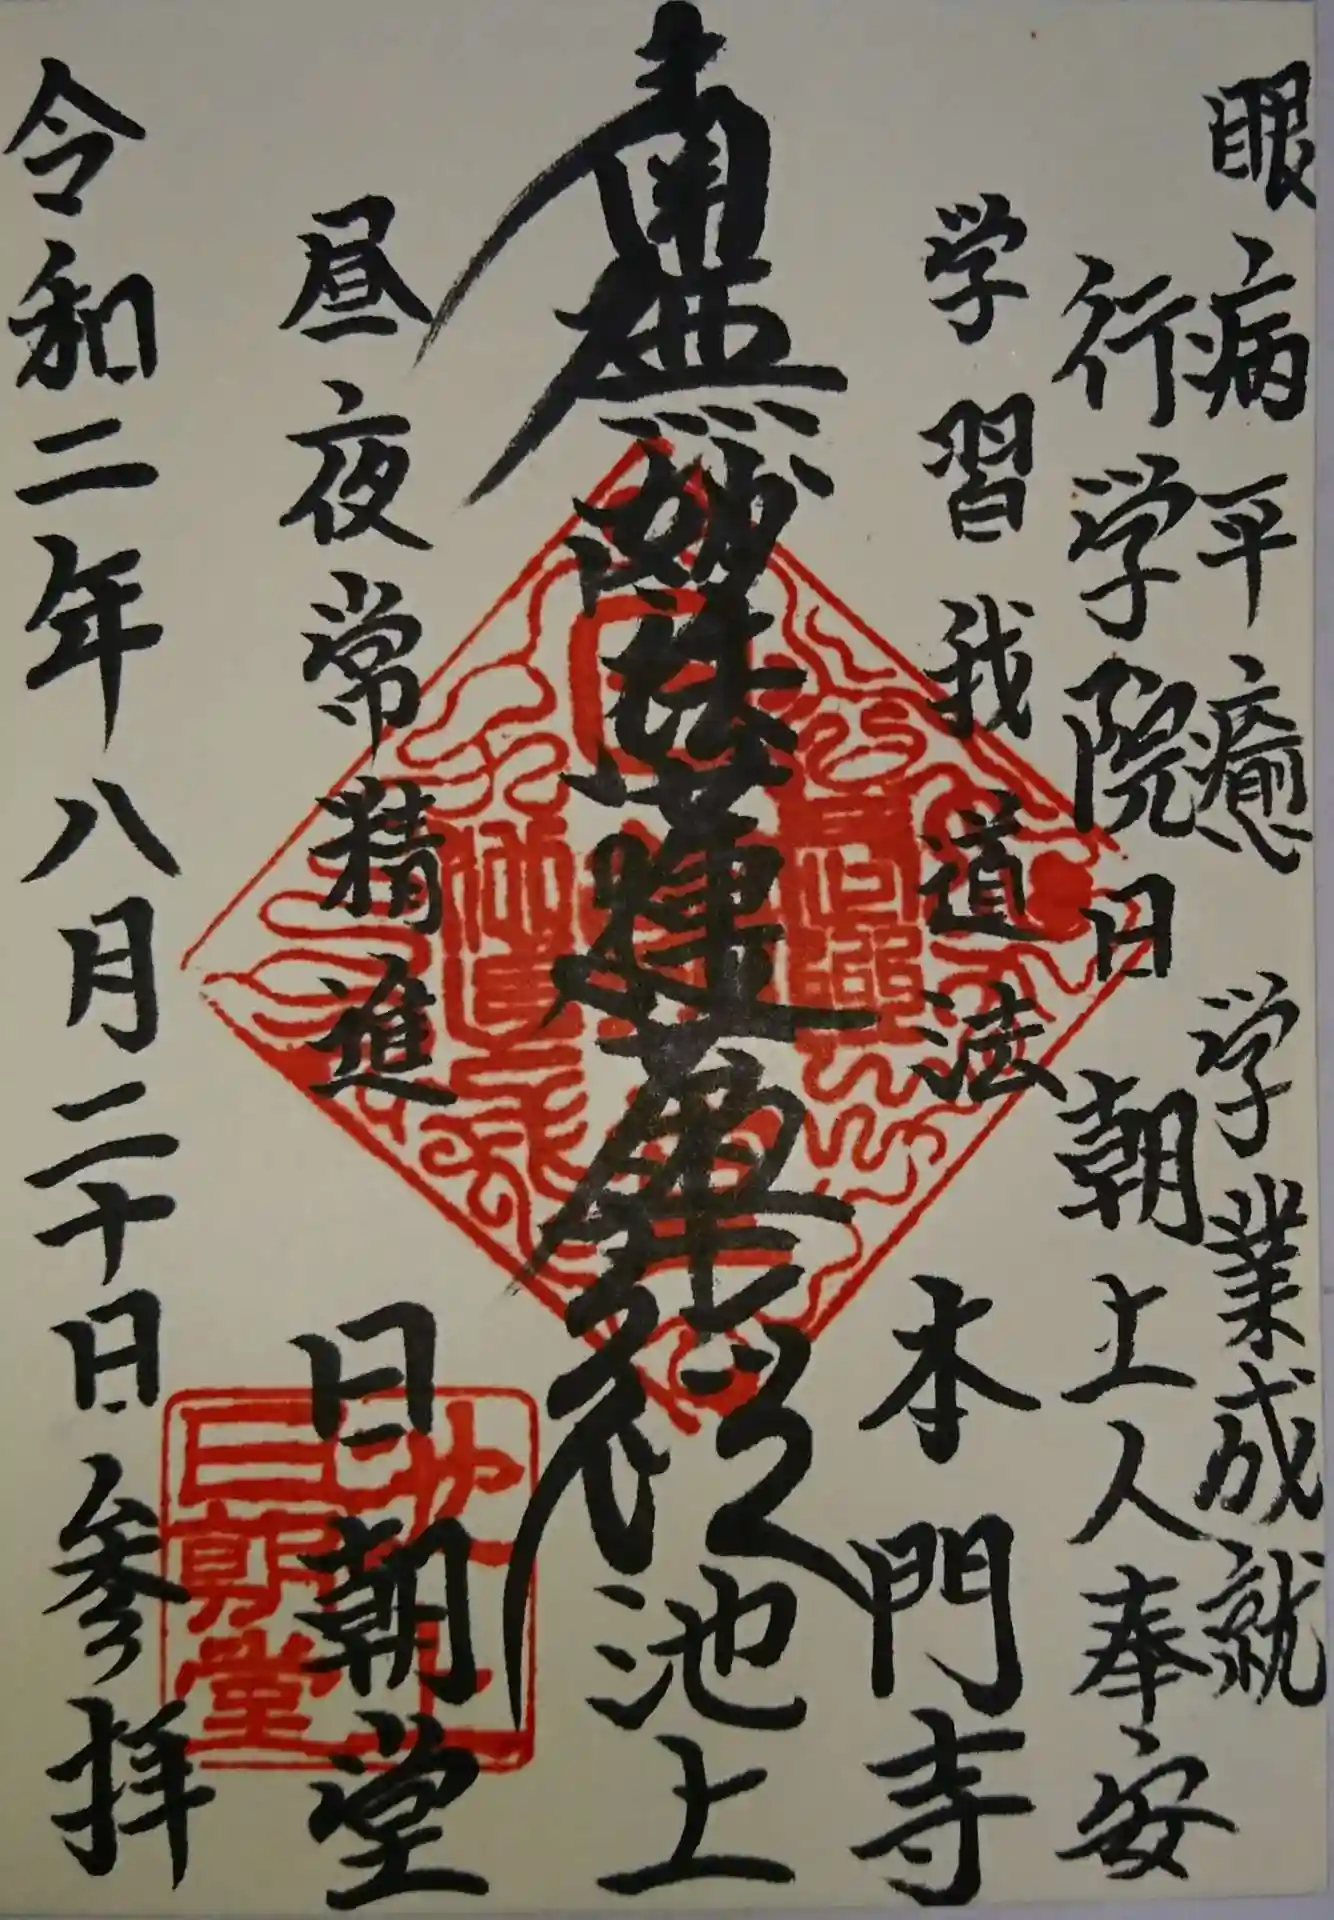 眼病平癒 学業成就
行学院日朝上人奉安
学習我道法
本門寺
南無妙法蓮華経
池上
昼夜常精進
日朝堂
令和二年八月二十日参拝